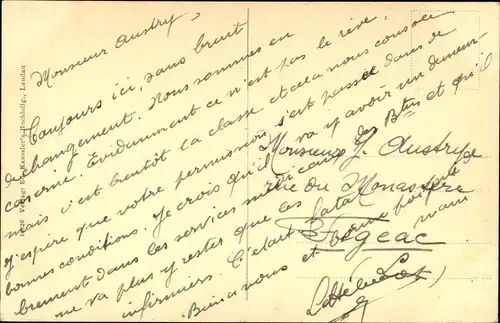 Monsieur Austry,
Toujours ici, sans bruit
de changement. Nous sommes en
caserne. Évidemment ce n'est pas le rêve,
mais c'est bientôt la classe et cela nous console
J'espère que votre permission s'est passée dans de
bonnes conditions. Je crois qu'il va y avoir un
brement dans les services médicaux des Btns et qu'il
ne va plus y rester que ces
infirmiers. C'était fatal
Bien à vous et bonne poignée
main
Monsieur J. Austry
rue du Monastère
Figeac
(Lot)
Verlag Ed. Kaussler's Buchhdlg., Landau